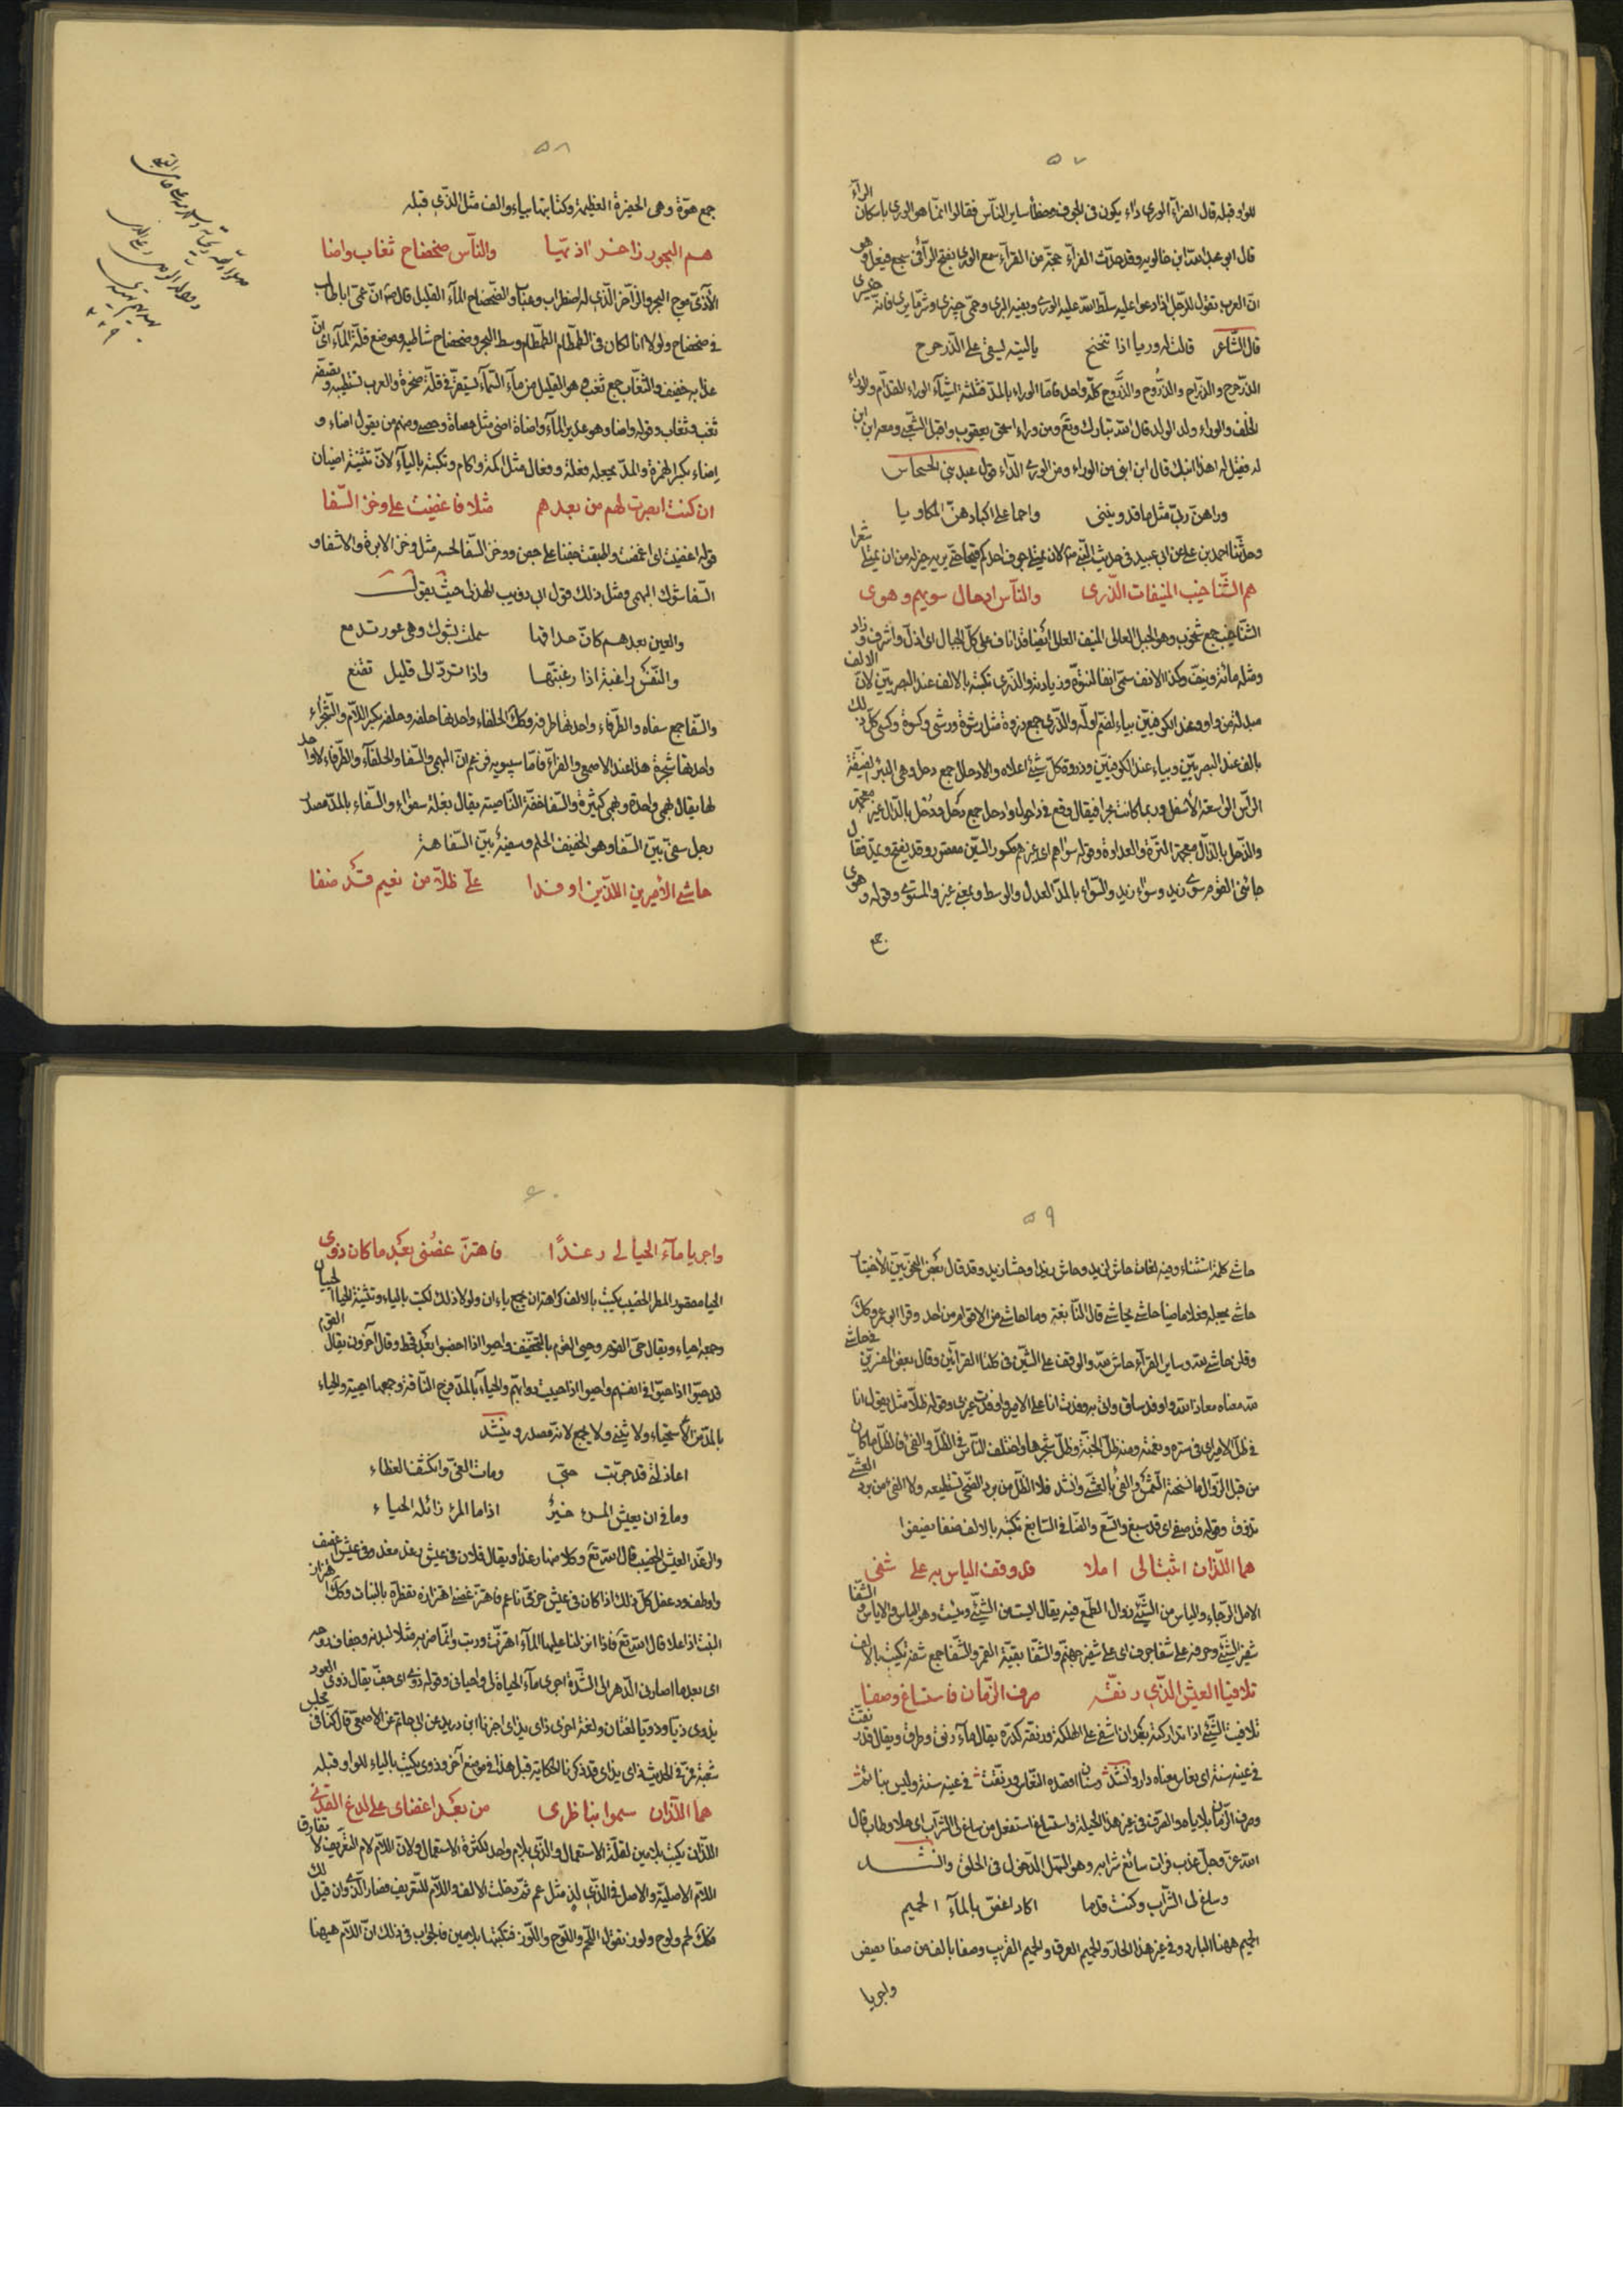 ٥٧
للواو قبله قال الفرّاء الورى داء يكون فى الجوف وخطأ ساير النّاس فقالوا انّما هو الورى باسكان الرآء
قال ابو عبد الله ابن خالويه وقد حدّث الفرآء حجّة من القرّاء سمع الورى بفتح الرّآء فى سجع فيقل وهو
انّ العرب تقول للرّجل اذا دعوا عليه سلّط الله عليه الورى وبفيه البرى وحمّى خيبرى وشرّ ما يرى فانّه خيسرى
قال الشّاعر قالت له وريا اذا تنحنح يا ليته يسقى على الذّرحرح
الذّرحرح والذرّاح والذّرّوح والذُّرّوح كلّه واحد فامّا الوراء بالمدّ فثلثة اشيآء الوراء القدّام والوراء
الخلف والوراء ولد الولد قال الله تبارك وتع ومن وراء اسحق يعقوب واقبل الشّعبى ومعه ابن ابن
له فقيل له اهذا ابنك قال ابن ابنى من الوراء ومن الورى الدّاء قول عبد بنى الحسحاس
وراهنّ ربّى مثل ما قد ورينى واحما على اكبادهنّ المكاويا
وحدّثنا احمد بن على عن ابى عبيد فى حديث النّبى ص لان يمتلئ جوف احدكم قيحا حتّى يريه خير له من ان يمتلئ شعرا
هم الشّناخيب المنيفات الذّرى والنّاس ادحال سويهم وهوى
الشّناخيب جمع شنخوب وهو الجبل العالى المنيف العالى ايضا قد اناف على كلّ الجبال اى اذلّ واشرف وزاد
ومثله مائة ونيّف وكذا الانف سمّى انفا لنتوّه وزيادته والذّرى تكتبه بالالف عند البصريّين لانّ الالف
مبدلة من واو وعند الكوفيّين بياء لضمّ اوله والذّرى جمع ذروة مثل رشوة ورشى وكسوة وكسى كلّ ذلك
بالف عند البصريّين وبياء عند الكوفيّين وذروة كلّ شئ اعلاه والادحال جمع دحل وهى البئر الضيّقة
الرأس الواسعة الاسفل وربما كانت بحرا فيقال وقع فى داحول وادحل جمع دحل ودُحل بالدّال غير معجمة
والذّحل بالذّال معجمة التّرة والعداوة وقوله سواهم اى غيرهم مكسور السّين مقصور وقد يفتح ويمدّ فيقال
جائنى القوم سوى زيد وسواء زيد والسّواء بالمدّ العدل والوسط وبمعنى غير والمستوى وقوله وهوى
جمع
٥٨
جمع هوّة وهى الحفرة العظيمة وكتابتها بياء والف مثل الذّى قبله
هم البحور زاخر اذيّها والنّاس ضحضاح ثغاب واضا
الأذىّ موج البحر والزّاخر الذّى له اضطراب وعباب والضّحضاح المآء القليل قال ص انّ عمّى اباطالب
فى ضحضاح ولولا انا لكان فى الطمّطام الطمّطام وسط البحر وضحضاح شاطيه وموضع قلّة المآء اى انّ
عذابه خفيف والثّغاب جمع ثغب وهو القليل من مآء السّمآء يستقرّ فى قلّة صخرة والعرب تستطيبه
ثغب وثغاب وقوله واضا وهو غدير المآء واضاة اضى مثل حصاة وحصى ومنهم من يقول اضاء و
اِضاء بكسر الهمزة والمدّ يجعله فعلة وفعال مثل اكمة واكام وتكتبه باليآء لانّ تثنيته اضيان
ان كنت ابصرت لهم من بعدهم مثلا فاغضيت على وخز السّفا
قوله اغضيت اى اغمضت واطبقت جفنا على جفن ووخز السّفا لحسه مثل وخز الابرة والاشفا و
السّفا شوك البهمى ومثل ذلك قول ابى ذويب الهذلى حيث يقول
والعين بعدهم كانّ حداقها سملت بشوك وهى عور تدمع
والنّفس راغبة اذا رغبتها واذا تردّ الى قليل تقنع
والسّفا جمع سفاه والطّرفاء واحدتها طرفه وكذلك الحلفاء واحدتها حلفه وحلفه بكسر اللّام والشّجراء
واحدتها شجرة هذا عند الاصمعى والفرّاء فامّا سيبويه فزعم انّ البهمى والسّفا والحلفآء والطّرفاء لا واحد
لها يقال بهمى واحدة وبهمى كثيرة والسّفا خفّة النّاصية يقال بغلة سفواء والسّفاء بالمدّ مصدر
رجل سفىّ بيّن السّفا وهو الخفيف الحلم وسفيهٌ بيّن السّفاهة
حاشى الأميرين اللّذين اوفدا علىّ ظلّا من نعيم قد ضفا
٥٩
حاشى كلمة استثناء وفيه لغات حاش لزيد وحاش زيدا وحشا زيد وقد قال بعض النحويّين الأختيار
حاشى يجعله فعلا ماضيا حاشى يحاشى قال النّابغة وما احاشى من الاقوام من احد وقرا ابو عمرو كذلك
وقلن حاشى لله وساير القرآء حاش لله والوقف على الشّين فى كلتا القرائتين وقال بعض المفسّرين فى حاشى
لله معناه معاذ الله واوفد ساق واتى به وفدت انا على الامير واوفدت غيرى وقوله ظلّا مثل يقول انا
فى ظلّ الامير اى فى ستره ونعمته ومنه ظلّ الجنّة وظلّ شجرها واختلف النّاس فى الظلّ والفئ فالظلّ ما كان
من قبل الزّوال ما نسخته الشّمس والفئ بالعشىّ وانشد فلا الظّلّ من برد الضّحى تستطيعه ولا الفئ من برد العشىّ
تذوق وقوله قد ضفى اى قد سبغ واتّسع والضّافى السّابغ تكتبه بالالف ضفا يضفوا
هما اللّذان اثبتا لى املا قد وقف الياس به على شفى
الامل الرّجاء والياس من الشّئ زوال الطّمع فيه يقال ايست من الشّئ ويئست وهو الياس والاياس والشّفا
شفير الشّئ وحرفه على شفا جرف اى على شفير جهنّم والشّفا بقيّة القمر والشّفا جمع شفة تكتب بالالف
تلافيا العيش الذّى رنّقه صرف الزّمان فاستساغ وصفا
تلافيت الشّئ اذا تداركته بعد ان اشفى على الهلكة ورنقه كدره يقال مآء رنق وطرق ويقال قد رنقت
فى عينه سنة اى نعاس معناه دار وانشد وسنان اقصده النّعاس ورنّقت فى عينه سنة وليس بنائم
وصرف الزّمان بلاياه والصّرف فى غير هذا الحيلة واستساغ استفعل من ساغ لى الشّراب اى حلا وطاب قال
الله عزّ وجلّ عذب فرات سائغ شرابه وهو السّهل الدّخول فى الحلق وانشد
وساغ لى الشّراب وكنت قدما اكاد اغصّ بالمآء الحميم
الحميم ههنا البارد وفى غير هذا الحارّ والحميم العرق والحميم القريب وصفا بالف من صفا يصفو
واجريا
٦٠
واجريا مآء الحيا لى رغدًا فاهتزّ غصنى بعد ما كان ذوى
الحيا مقصور المطر الخصيب يكتب بالالف كراهة ان يجمع ياءان ولولا ذلك لكتب بالياء وتثنية الحيا حييان
وجمعه احياء ويقال حىّ القوم وحيى القوم بالتّخفيف واحيوا اذا اخصبوا بعد قحط وقال آخرون يقال القوم
قد حيّوا اذا حيّوا فى انفسهم واحيوا اذا حييت دوابّهم والحياء بالمدّ فرج النّاقة وجمعها احيية والحياء
بالمدّ من الأستحياء ولا يثنّى ولا يجمع لانّه مصدر وينشد
اعاذلتى قد جرّبت حتّى ومات الغىّ وانكشف الغطاء
وما فى ان يعيش المرء خيرٌ اذا ما المرء زائله الحياء
والرغد العيش الخصيب قال الله تع وكلا منها رغدا ويقال فلان فى عيش رغد مغد وفى عيش اغضف
واوطف ودغفل كلّ ذلك اذا كان فى عيش حرفى ناعم فاهتزّ غصنى اهتزازه تفطّره بالنبات وكذلك اهتزاز
النبت اذا علا قال الله تع فاذا انزلنا عليها المآء اهتزّت وربت وانّما ضربه مثلا لبدنه وجفاف عوده
اى بعد ما اصارنى الدّهر الى الشّدّة اجرى مآء الحياة لى واحيانى وقوله ذوى اى جفّ يقال ذوى العود
يذوى ذيّا وذويّا لغتان ولغة اخرى ذاى يذاى اخبرنا ابن دريد عن ابى حاتم عن الاصمعى قال كنّا فى مجلس
شعبة فمرّ فى الحديث ذاى يذاى قد ذكرنا الحكاية قبل هذا فى موضع آخر وذوى يكتب بالياء للواو قبله
هما اللّذان سموا بناظرى من بعد اغضاى على لدغ القذى
اللّذان يكتب بلامين لقلّة الاستعمال والذّى بلام واحد لكثرة الاستعمال ولانّ اللاّم لام التّعريف لا تفارق
اللاّم الاصليّة والاصل فى الذّى لذٍ مثل عم ثمّ دخلت الالف واللاّم للتعريف فصار الذّى وان قيل لك
فكذلك لحم ولوح ولوز نقول اللّحم واللّوح واللّوز فتكتبها بلامين فالجواب فى ذلك انّ اللاّم هيهنا